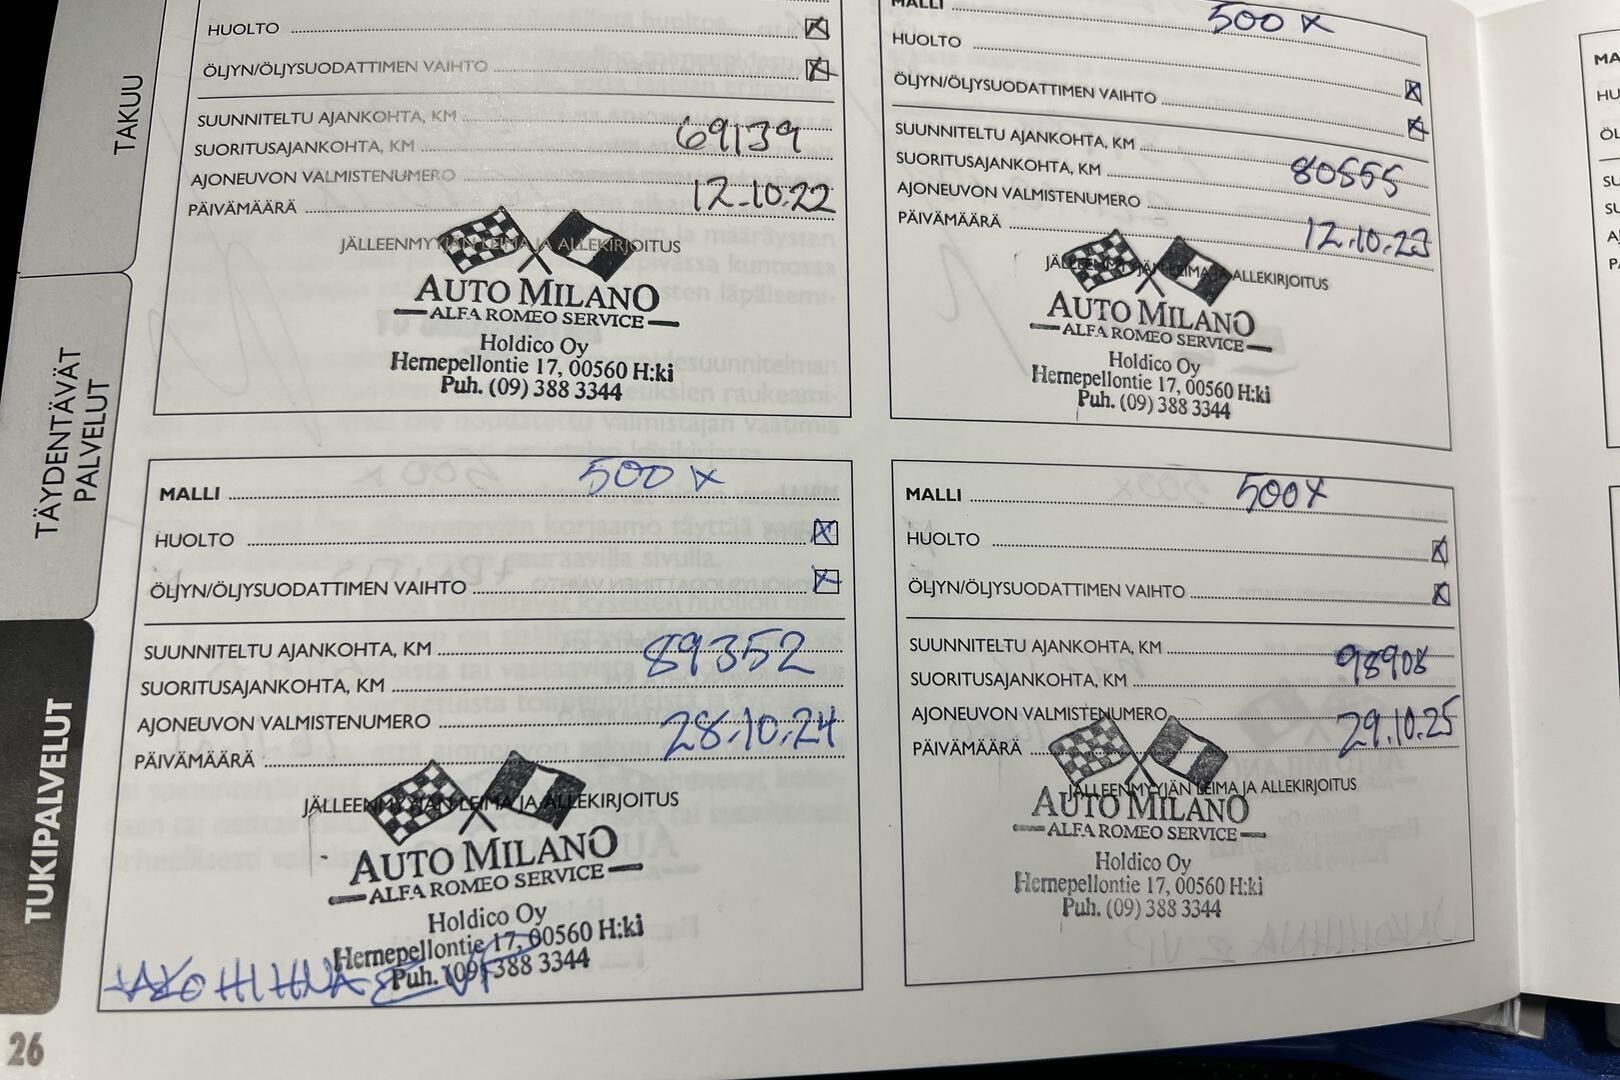 TAKUU
TÄYDENTÄVÄT
PALVELUT
TUKIPALVELUT
26
HUOLTO
ÖLJYN/ÖLJYSUODATTIMEN VAIHTO
SUUNNITELTU AJANKOHTA, KM
SUORITUSAJANKOHTA, KM 69139
AJONEUVON VALMISTENUMERO
PÄIVÄMÄÄRÄ 12.10.22
JÄLLEENMYYJÄN LEIMA JA ALLEKIRJOITUS
AUTO MILANO
ALFA ROMEO SERVICE
Holdico Oy
Hernepellontie 17, 00560 H:ki
Puh. (09) 388 3344
MALLI 500 X
HUOLTO
ÖLJYN/ÖLJYSUODATTIMEN VAIHTO
SUUNNITELTU AJANKOHTA, KM
SUORITUSAJANKOHTA, KM 80555
AJONEUVON VALMISTENUMERO
PÄIVÄMÄÄRÄ 12.10.23
JÄLLEENMYYJÄN LEIMA JA ALLEKIRJOITUS
AUTO MILANO
ALFA ROMEO SERVICE
Holdico Oy
Hernepellontie 17, 00560 H:ki
Puh. (09) 388 3344
MALLI 500 X
HUOLTO
ÖLJYN/ÖLJYSUODATTIMEN VAIHTO
SUUNNITELTU AJANKOHTA, KM 89352
SUORITUSAJANKOHTA, KM
AJONEUVON VALMISTENUMERO 28.10.24
PÄIVÄMÄÄRÄ
JÄLLEENMYYJÄN LEIMA JA ALLEKIRJOITUS
AUTO MILANO
ALFA ROMEO SERVICE
Holdico Oy
Hernepellontie 17, 00560 H:ki
Puh. (09) 388 3344
JAKOHIHNA & VP
MALLI 500X
HUOLTO
ÖLJYN/ÖLJYSUODATTIMEN VAIHTO
SUUNNITELTU AJANKOHTA, KM 98908
SUORITUSAJANKOHTA, KM
AJONEUVON VALMISTENUMERO 29.10.25
PÄIVÄMÄÄRÄ
JÄLLEENMYYJÄN LEIMA JA ALLEKIRJOITUS
AUTO MILANO
ALFA ROMEO SERVICE
Holdico Oy
Hernepellontie 17, 00560 H:ki
Puh. (09) 388 3344